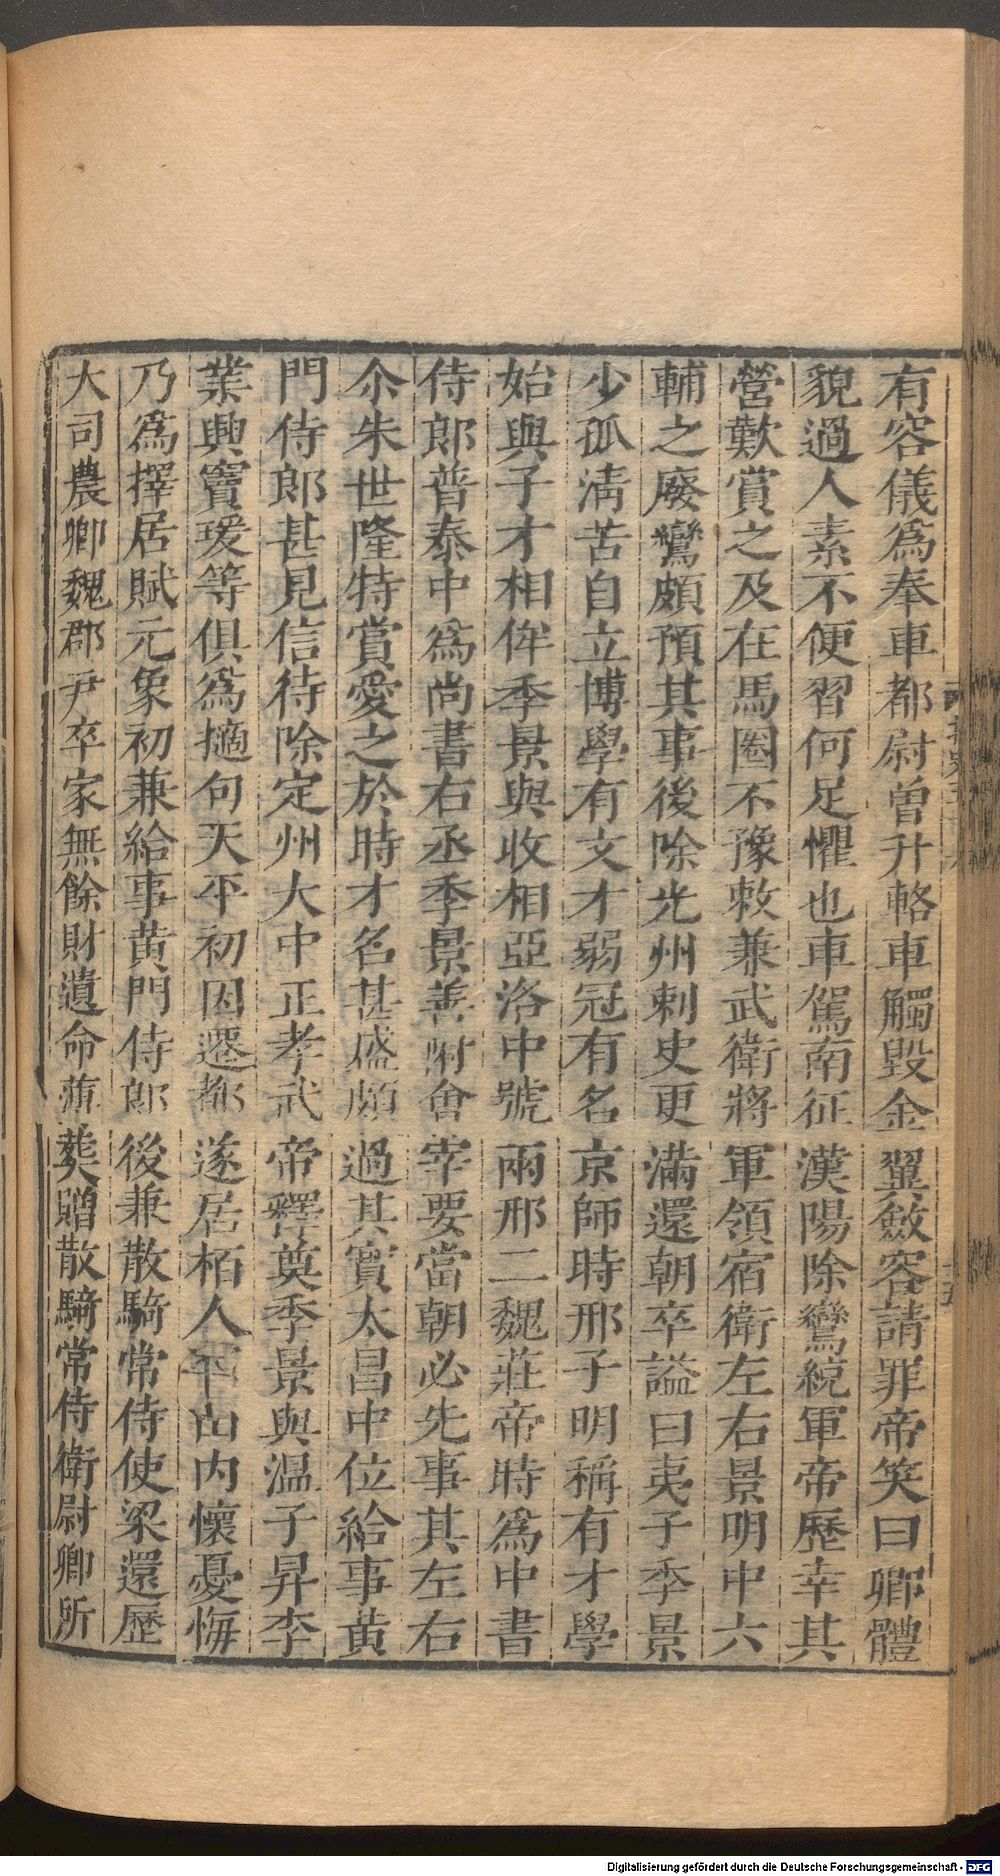 有容儀爲奉車都尉曽升輅車觸毀金翼斂容請罪帝笑曰卿體
貌過人素不便習何足懼也車駕南征漢陽除鸞統軍帝歷幸其
營歎賞之及在馬圈不豫敕兼武衛將軍領宿衛左右景明中六
輔之廢鸞頗預其事後除光州刺史更滿還朝卒謚曰夷子季景
少孤淸苦自立博學有文才弱冠有名京師時邢子明稱有才學
始與子才相侔季景與收相亞洛中號兩邢二魏莊帝時爲中書
侍郎普泰中爲尚書右丞季景善附會宰要當朝必先事其左右
尒朱世隆特賞愛之於時才名甚盛頗過其實太昌中位給事黄
門侍郎甚見信待除定州大中正孝武帝釋奠季景與温子昇李
業興竇瑗等俱爲擿句天平初因遷都遂居栢人西山内懷憂悔
乃爲擇居賦元象初兼給事黄門侍郎後兼散騎常侍使梁還歷
大司農卿魏郡尹卒家無餘財遺命薄葬贈散騎常侍衛尉卿所
Digitalisierung gefördert durch die Deutsche Forschungsgemeinschaft - DFG